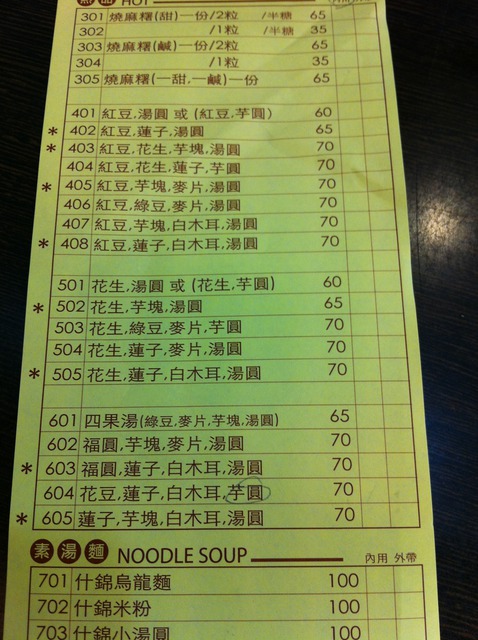 HOT
301 燒麻糬(甜)一份/2粒 /半糖 65
302 /1粒 /半糖 35
303 燒麻糬(鹹)一份/2粒 65
304 /1粒 35
305 燒麻糬(一甜,一鹹)一份 65
401 紅豆,湯圓 或 (紅豆,芋圓) 60
* 402 紅豆,蓮子,湯圓 65
* 403 紅豆,花生,芋塊,湯圓 70
404 紅豆,花生,蓮子,芋圓 70
* 405 紅豆,芋塊,麥片,湯圓 70
406 紅豆,綠豆,麥片,湯圓 70
407 紅豆,芋塊,白木耳,湯圓 70
* 408 紅豆,蓮子,白木耳,湯圓 70
501 花生,湯圓 或 (花生,芋圓) 60
* 502 花生,芋塊,湯圓 65
503 花生,綠豆,麥片,芋圓 70
504 花生,蓮子,麥片,湯圓 70
* 505 花生,蓮子,白木耳,湯圓 70
601 四果湯(綠豆,麥片,芋塊,湯圓) 65
602 福圓,芋塊,麥片,湯圓 70
* 603 福圓,蓮子,白木耳,湯圓 70
604 花豆,蓮子,白木耳,芋圓 70
* 605 蓮子,芋塊,白木耳,湯圓 70
素湯麵 NOODLE SOUP 內用 外帶
701 什錦烏龍麵 100
702 什錦米粉 100
703 什錦小湯圓 100